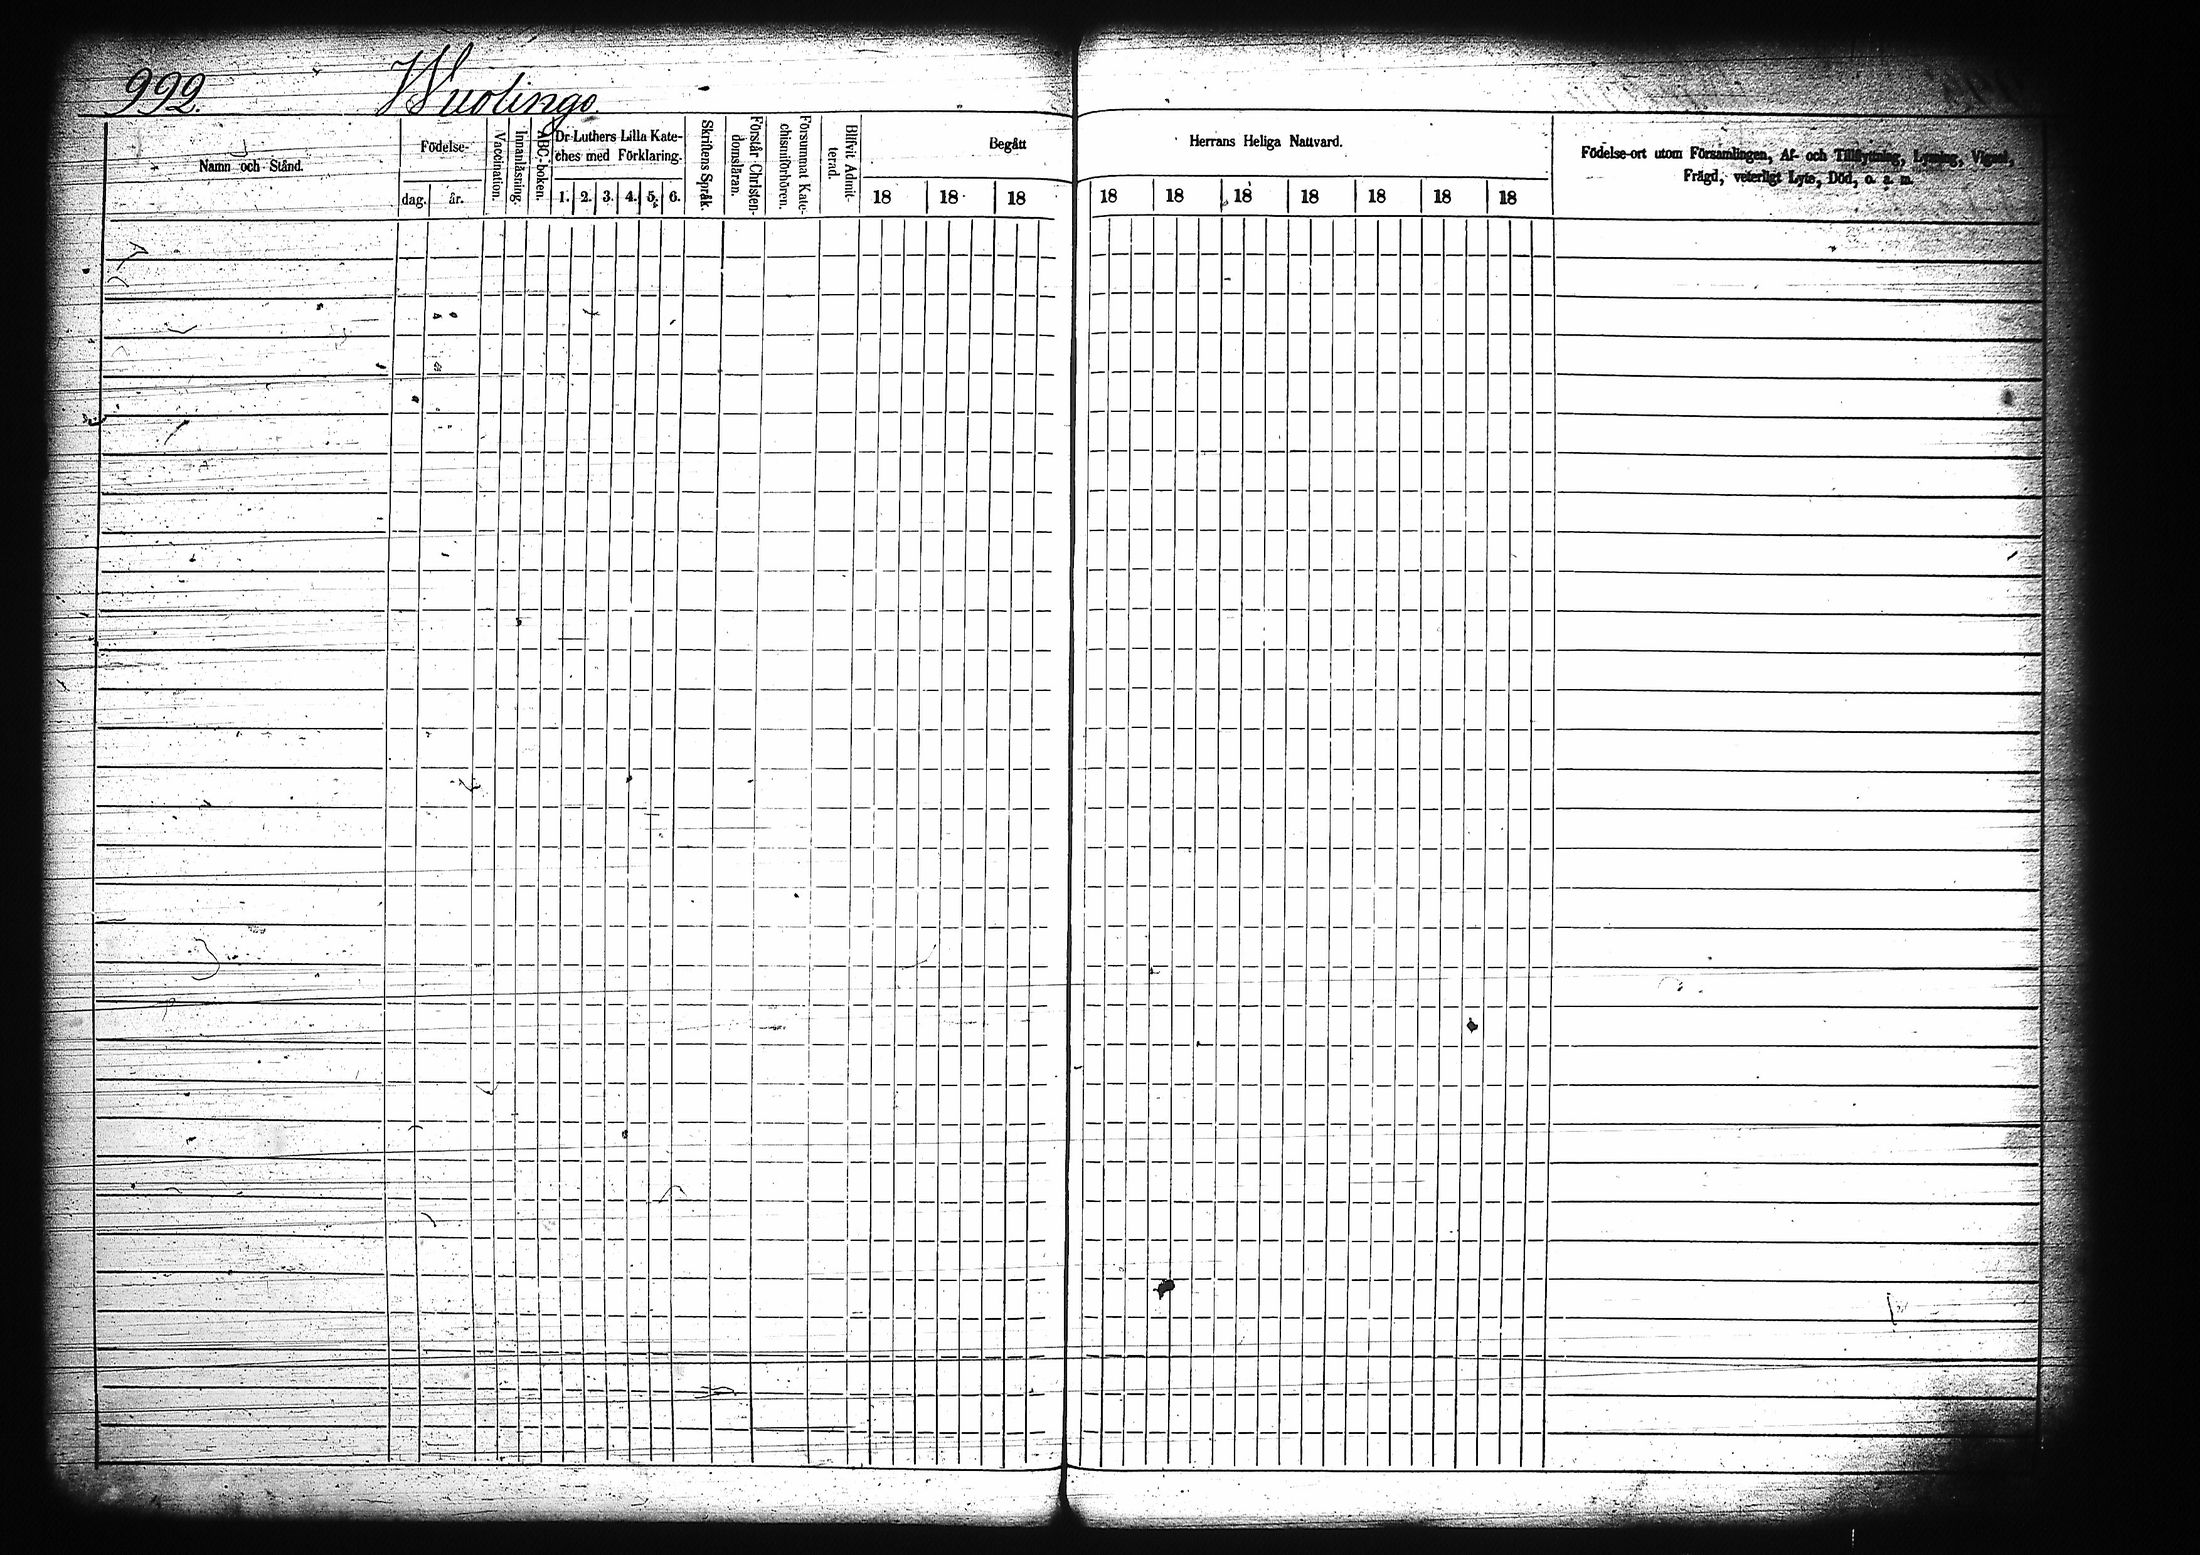 992. Wuolingo
Namn och Stånd.
Födelse-
dag.
år.
Vaccination.
Innanläsning.
ABC-boken.
Dr Luthers Lilla Kate-
ches med Förklaring.
1. 2. 3. 4. 5. 6.
Skriftens Språk.
Förstår Christen-
domsläran.
Försummat Kate-
chismiförhören.
Blifvit Admit-
terad.
Begått
18 18 18
Herrans Heliga Nattvard.
18 18 18 18 18 18 18
Födelse-ort utom Församlingen, Af- och Tillflyttning, Lysning, Vigsel,
Frägd, veterligt Lyte, Död, o. s. m.